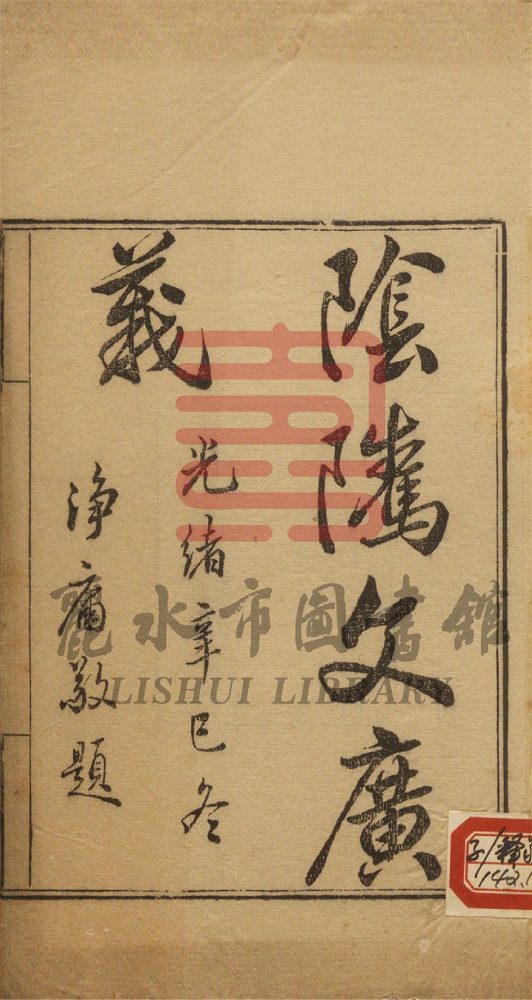 陰隲文廣
義
光緒辛巳冬
淨庸敬題
麗水市圖書館
LISHUI LIBRARY
子/釋
142.1